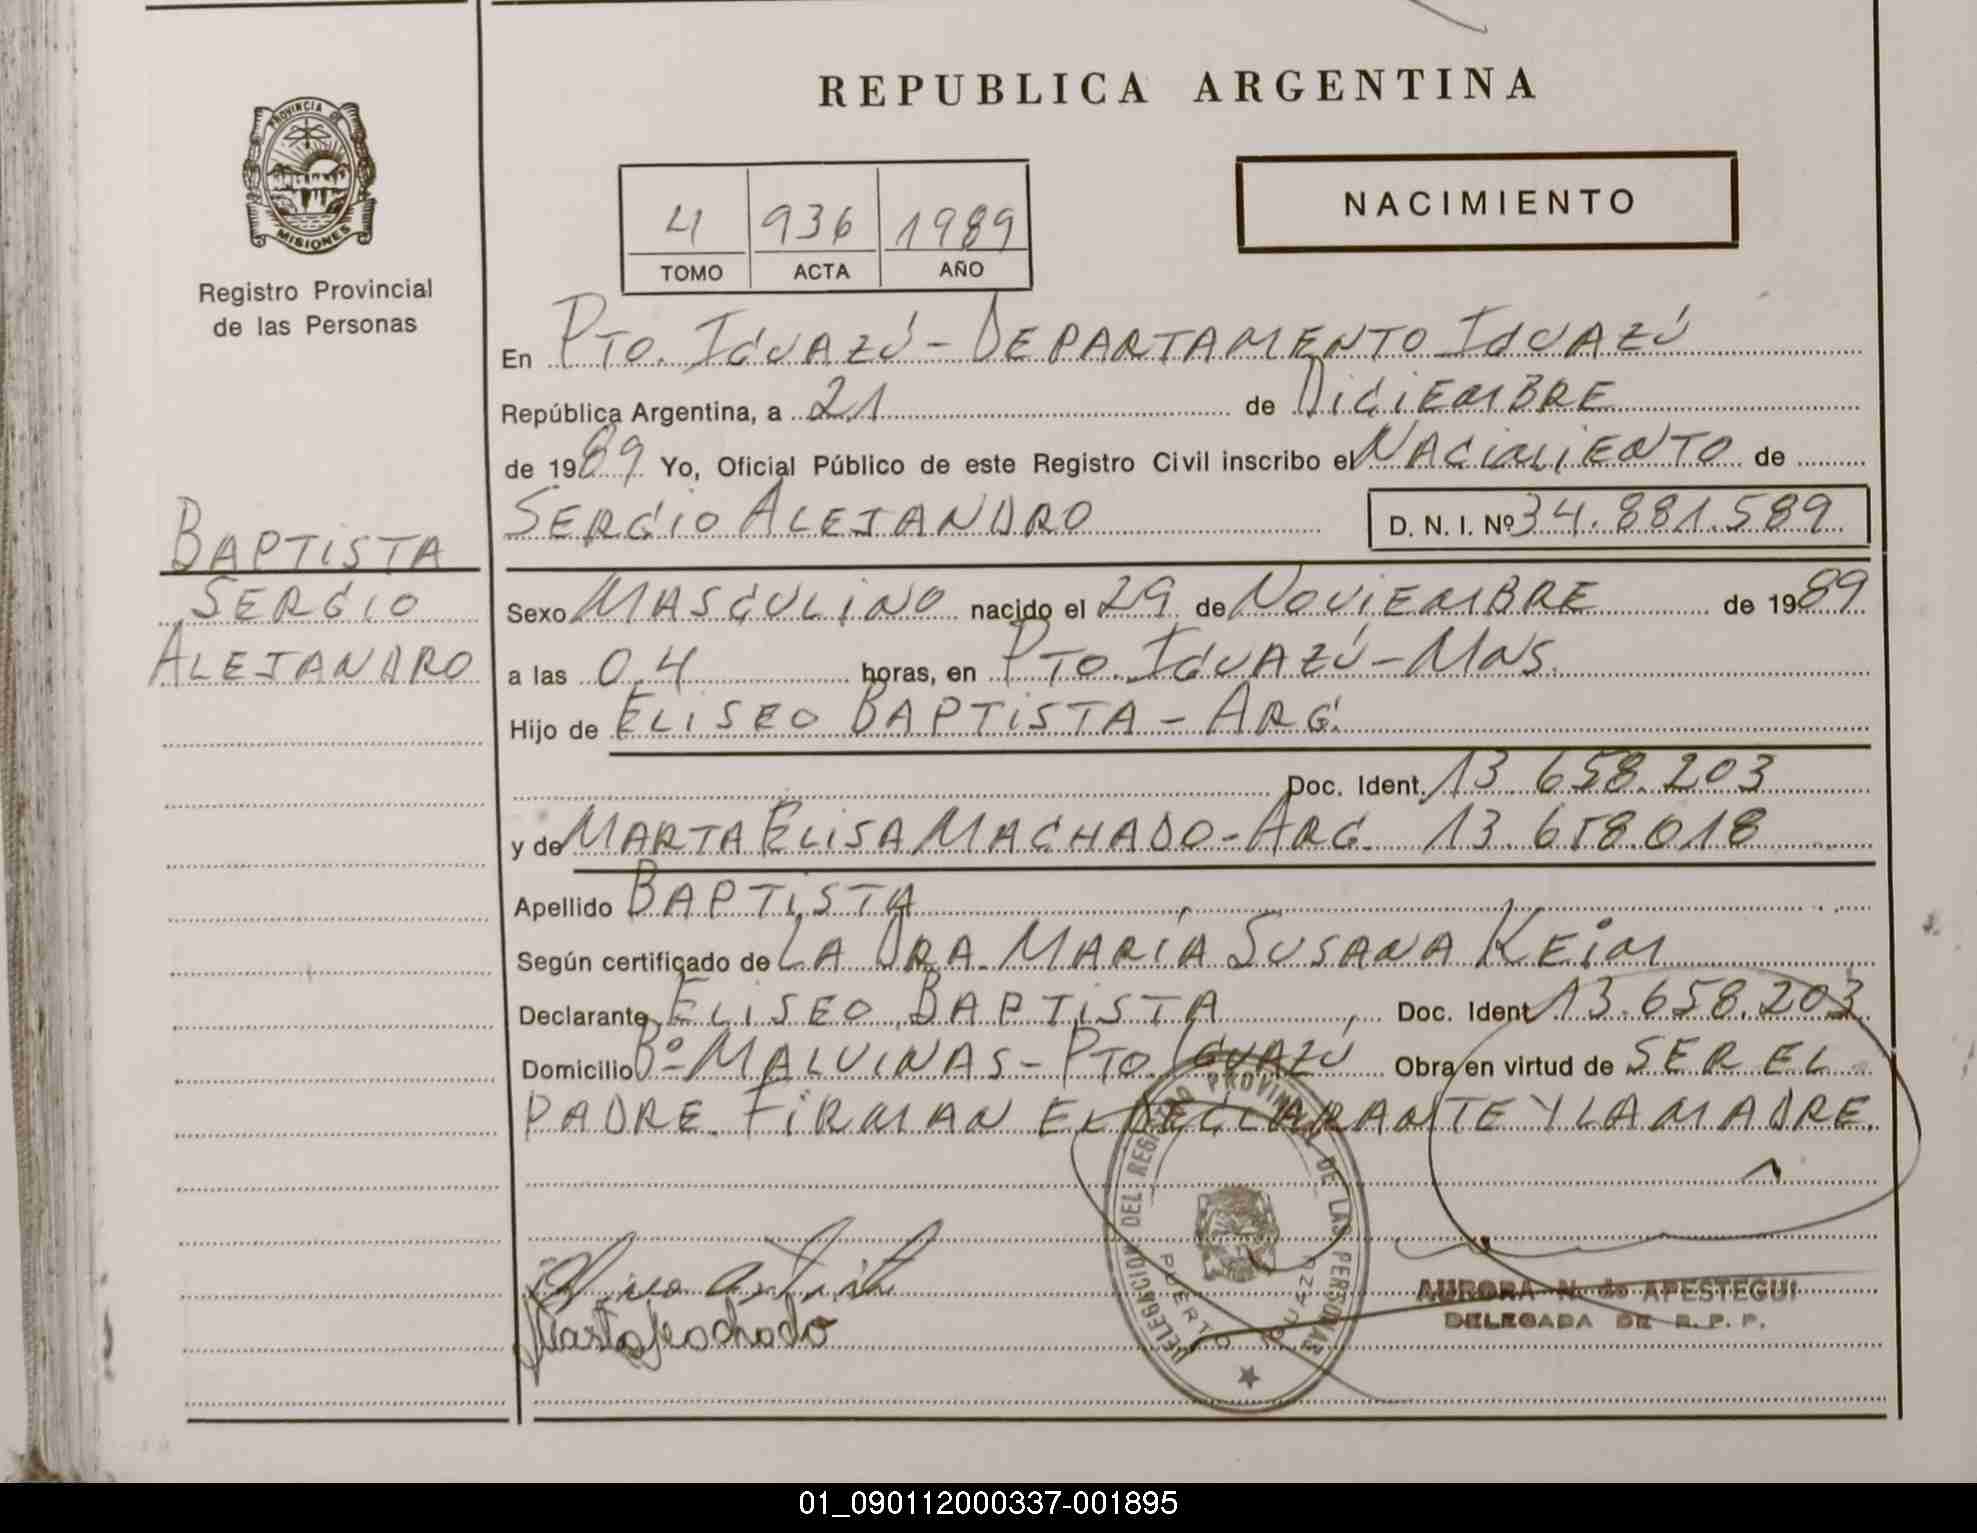 PROVINCIA DE
MISIONES
Registro Provincial
de las Personas
BAPTISTA
SERGIO
ALEJANDRO
REPUBLICA ARGENTINA
NACIMIENTO
4 936 1989
TOMO ACTA AÑO
En PTO. IGUAZÚ - DEPARTAMENTO IGUAZÚ
República Argentina, a 21 de DICIEMBRE
de 1989 Yo, Oficial Público de este Registro Civil inscribo el NACIMIENTO de
SERGIO ALEJANDRO D. N. I. Nº 34.881.589
Sexo MASCULINO nacido el 29 de NOVIEMBRE de 1989
a las 04 horas, en PTO. IGUAZÚ - MNS.
Hijo de ELISEO BAPTISTA - ARG.
Doc. Ident. 13.658.203
y de MARTA ELISA MACHADO - ARG. 13.658.018
Apellido BAPTISTA
Según certificado de LA DRA. MARÍA SUSANA KEIM
Declarante ELISEO BAPTISTA, Doc. Ident 13.658.203
Domicilio Bº MALVINAS - PTO. IGUAZÚ Obra en virtud de SER EL
PADRE. FIRMAN EL DECLARANTE Y LA MADRE.
DELEGACION DEL REGISTRO PROVINCIAL DE LAS PERSONAS
PUERTO IGUAZU
AURORA N. de APESTEGUI
DELEGADA DE R. P. P.
Marta Machado
01_090112000337-001895